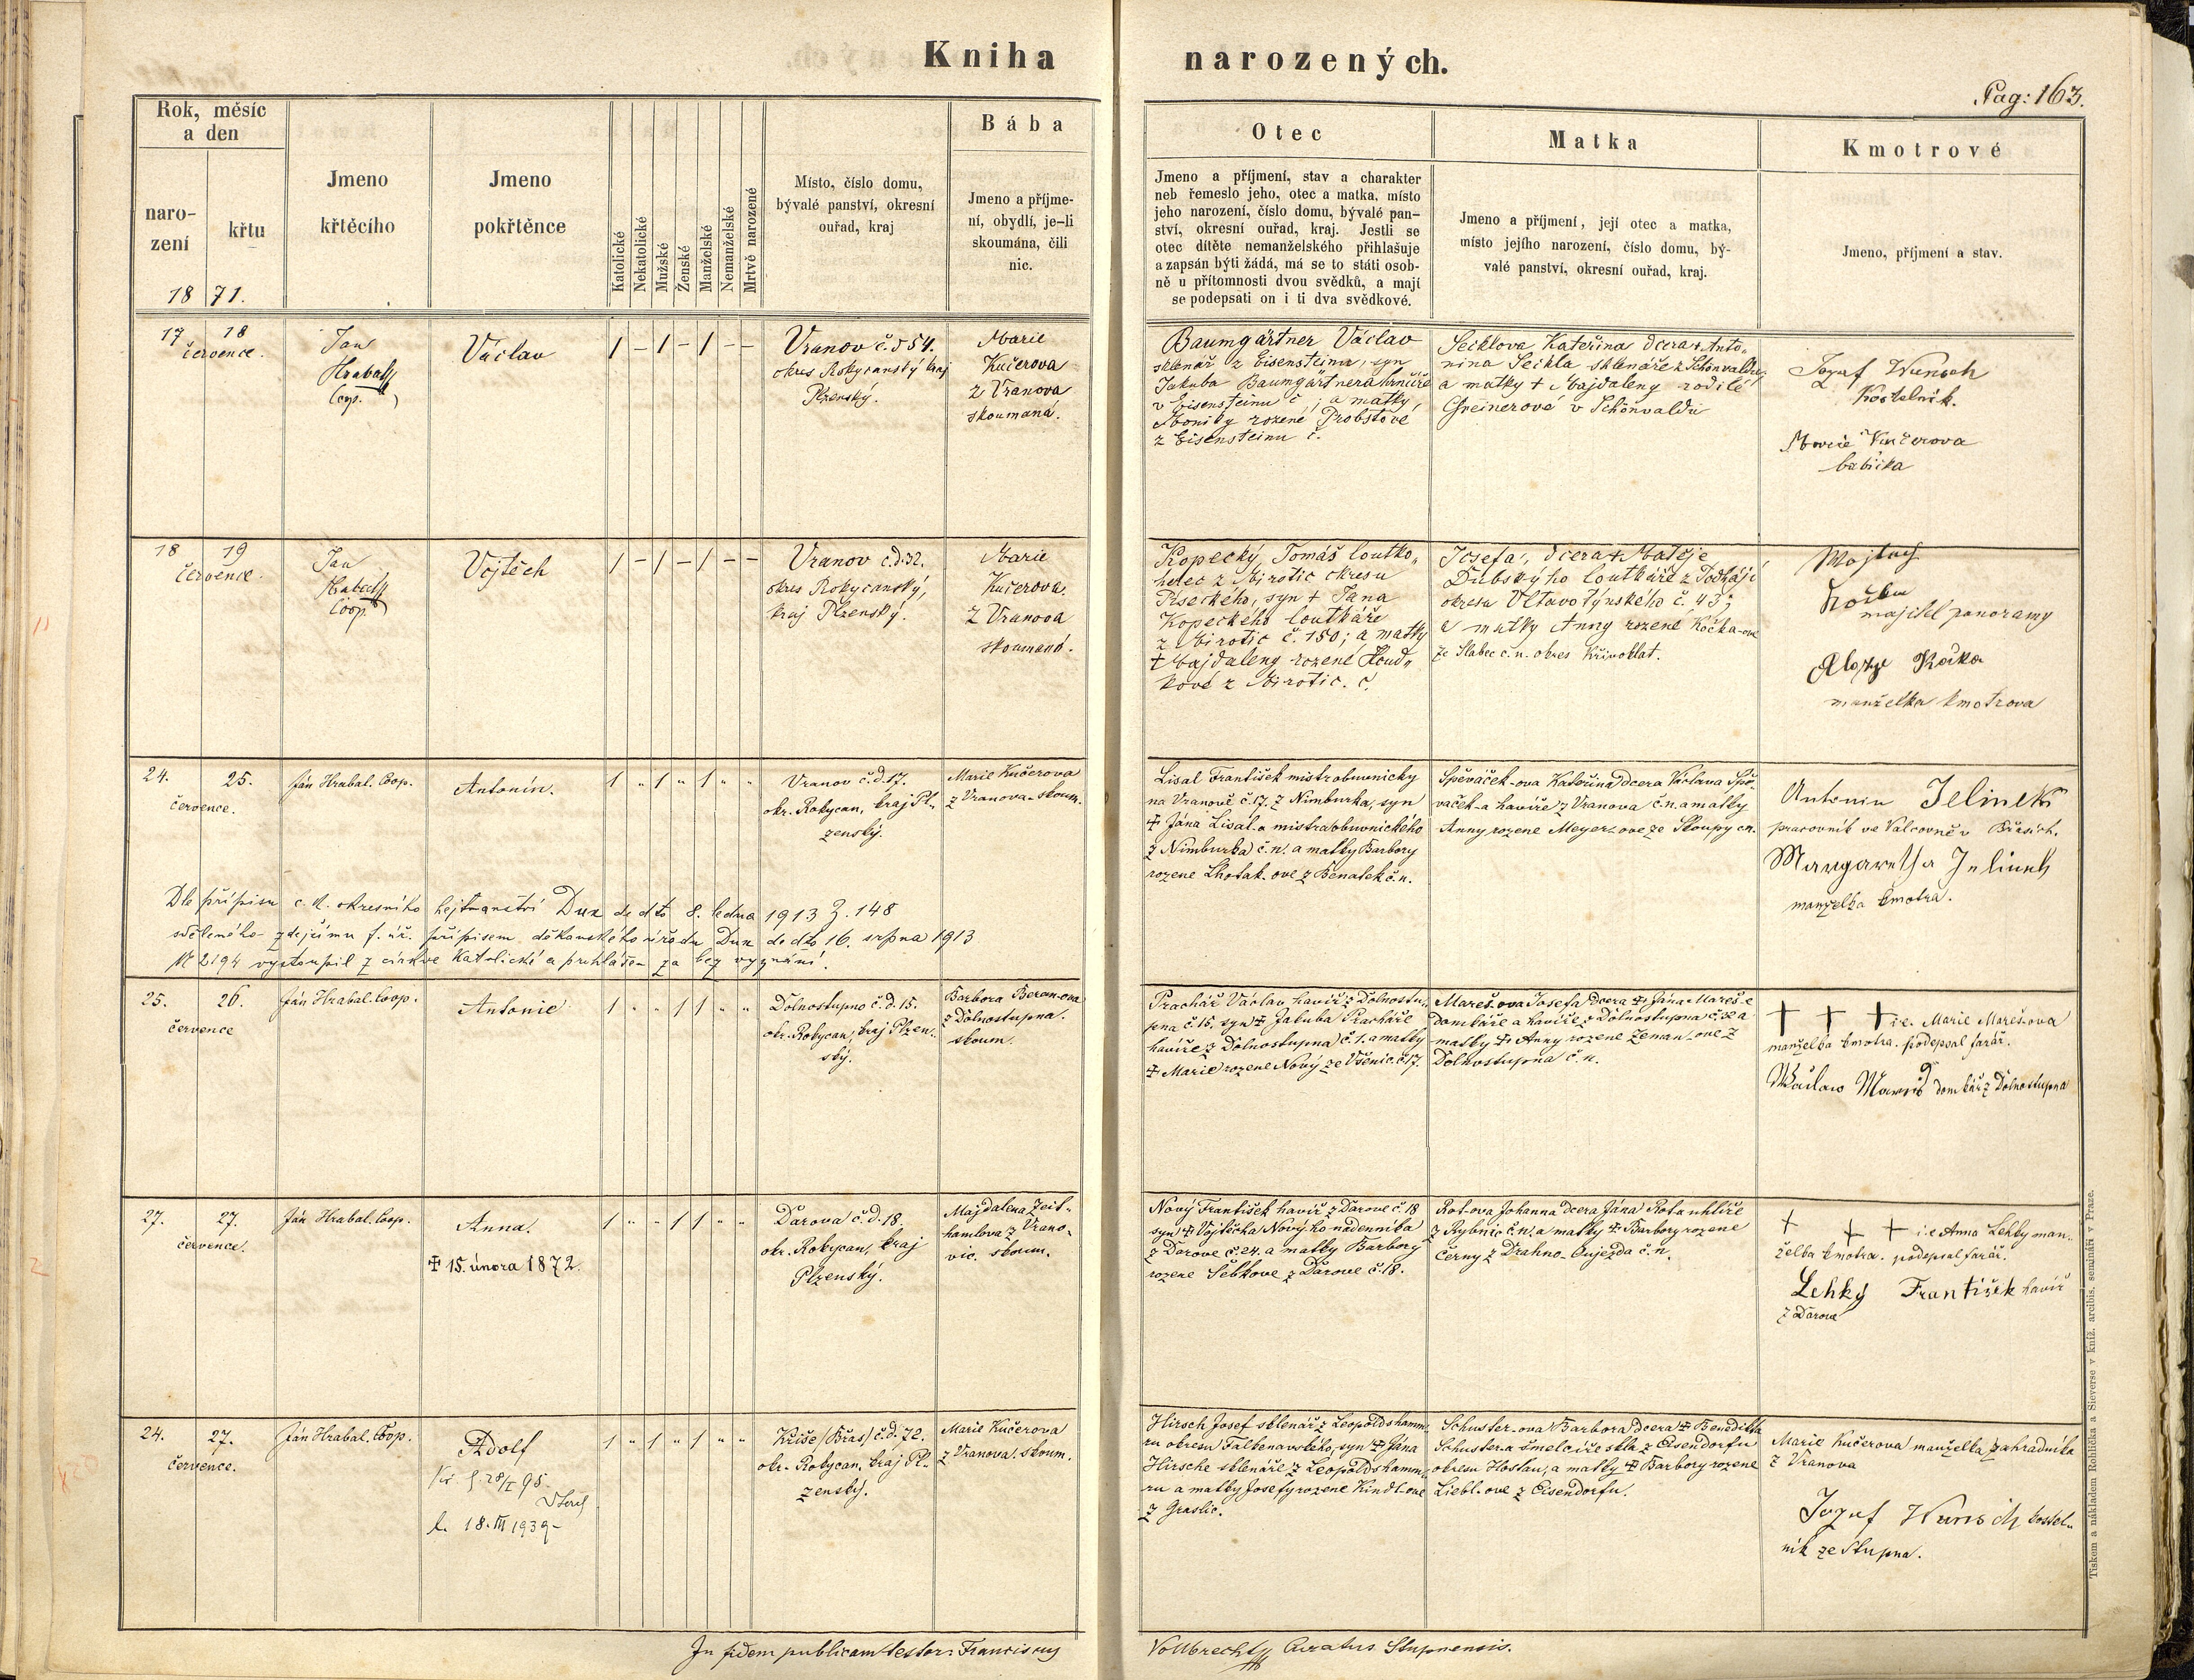 Kniha
narozených.
Pag: 163.
Rok, měsíc
a den
naro-
zení
křtu
18 71.
Jmeno
křtěcího
Jmeno
pokřtěnce
Katolické
Nekatolické
Mužské
Ženské
Manželské
Nemanželské
Mrtvě narozené
Místo, číslo domu,
bývalé panství, okresní
ouřad, kraj
Bába
Jmeno a příjme-
ní, obydlí, je-li
skoumána, čili
nic.
Otec
Jmeno a příjmení, stav a charakter
neb řemeslo jeho, otec a matka, místo
jeho narození, číslo domu, bývalé pan-
ství, okresní ouřad, kraj. Jestli se
otec dítěte nemanželského přihlašuje
a zapsán býti žádá, má se to státi osob-
ně u přítomnosti dvou svědků, a mají
se podepsati on i ti dva svědkové.
Matka
Jmeno a příjmení, její otec a matka,
místo jejího narození, číslo domu, bý-
valé panství, okresní ouřad, kraj.
Kmotrové
Jmeno, příjmení a stav.
17 18
července.
Jan
Hrabal
Coop.
Václav
1 – 1 – 1 – –
Vranov č. 554.
okres Rokycanský kraj
Plzenský.
Marie
Kučerova
z Vranova
skoumaná.
Baumgärtner Václav
sklenář z Eisensteinu, syn
Jakuba Baumgärtnera hrnčíře
v Eisensteinu č ; a matky
Moniky rozené Probstové
z Eisensteinu č.
Seiklova Kateřina dcera + Anto-
nina Seikla sklenáře z Schönvaldu,
a matky + Majdaleny rodilé
Greinerové v Schönvaldu
Jozef Wunsch
Kostelník.
Marie Kučerova
babička
18 19
července.
Jan
Hrabal
Coop.
Vojtěch
1 – 1 – 1 – –
Vranov č.d. 32.
okres Rokycanský,
kraj Plzenský.
Marie
Kučerova.
z Vranova
skoumaná.
Kopecký Tomáš loutko-
herec z Mirotic okresu
Píseckého, syn + Jana
Kopeckého loutkáře
z Mirotic č. 180; a matky
+ Majdaleny rozené Houd-
kové z Mirotic. č.
Josefa, dcera + Matěje
Dubského loutkáře z Podhájí
okresu Vltavotýnského č. 43;
a matky Anny rozené Kočka-ové
ze Slabec č. n. okres Křivoklat.
Wojtěch
Kočka
majitel panoramy
Kočka
manželka kmotrova
24. 25.
července.
Ján Hrabal. Coop.
Antonín.
1 „ 1 „ 1 „ „
Vranov č.d. 17.
okr. Rokycan, kraj Pl-
zenský.
Marie Kučerova
z Vranova. skoum.
Lisal František mistr obuvnicky
na Vranově č. 17. z Nimburka, syn
+ Jána Lisal-a mistra obuvnického
z Nimburka č. n. a matky Barbory
rozene Lhotak-ove z Benatek č. n.
Spěváček-ova Kateřina dcera Václava Spě-
vaček-a havíře z Vranova č. n. a matky
Anny rozene Meyer-ove ze Skoupy č. n.
Antonin Jelinek
pracovník ve Valcovně v Břasích.
Margaretha Jelinek
manzelka kmotra.
Dle přípisu c. k. okresního hejtmanství Dux de dto 8. ledna 1913 Z. 148
sděleného zdejšímu f. úř. přípisem děkanského úřadu Dux de dto 16. srpna 1913
N. 2194 vystoupil z církve katolické a prohlášen za bez vyznání.
25. 26.
července
Ján Hrabal. Coop.
Antonie
1 „ „ 1 1 „ „
Dolnostupno č. d. 15.
okr. Rokycan, kraj Plzen-
ský.
Barbora Beran-ova
z Dolnostupna.
skoum.
Prachař Václav havíř z Dolnostu-
pna č. 15. syn + Jakuba Prachaře
havíře z Dolnostupna č. 1. a matky
+ Marie rozene Nový ze Všenic. č. 17.
Mareš-ova Josefa dcera + Jána Mareš-e
domkáře a havíře z Dolnostupna č. 32 a
matky + Anny rozene Zeman-ove z
Dolnostupna č. n.
+ + + i.e. Marie Mareš-ova
manželka kmotra. podepsal farář.
Wáclaw Mareš domkář z Dolnostupna
27. 27.
července.
Ján Hrabal. Coop.
Anna.
+ 15. února 1872.
1 „ „ 1 1 „ „
Darova č. d. 18.
okr. Rokycan, kraj
Plzenský.
Majdalena Zeit-
hamlova z Vrano-
vic. skoum.
Nový František havíř z Darove č. 18
syn + Vojtěcha Nový-ho nadenníka
z Darove č. 24. a matky Barbory
rozene Sebkove z Darove č. 18.
Rot-ova Johanna dcera Jána Rota uhlíře
z Rybnic č. n. a matky + Barbory rozene
Černy z Drahno-Oujezda č. n.
+ + + i.e Anna Lehky man-
želka kmotra. podepsal farář.
Lehky František havíř
z Darove
24. 27.
července.
Ján Hrabal. Coop.
Adolf
l. 18. III 1939
1 „ 1 „ 1 „ „
Kříše (Břas) č. d. 72.
okr. Rokycan, kraj Pl-
zenský.
Marie Kučerova
z Vranova. skoum.
Hirsch Josef sklenář z Leopoldshamm-
ru okresu Falkenavského, syn + Jána
Hirsche sklenáře z Leopoldshamm-
ru a matky Josefy rozene Kindl-ove
z Graslic.
Schuster-ova Barbora dcera + Benedikta
Schuster-a šmelcíře skla z Eisendorfu
okresu Hostau, a matky + Barbory rozene
Liebl-ove z Eisendorfu.
Marie Kučerova manželka zahradníka
z Vranova
Jozef Wunsch kostel-
ník ze Stupna.
In fidem publicam testor: Franciscus
Vollbrecht Curatus Stupnensis.
Tiskem a nákladem Rohlíčka a Sieverse v kníž. arcibis. semináři v Praze.